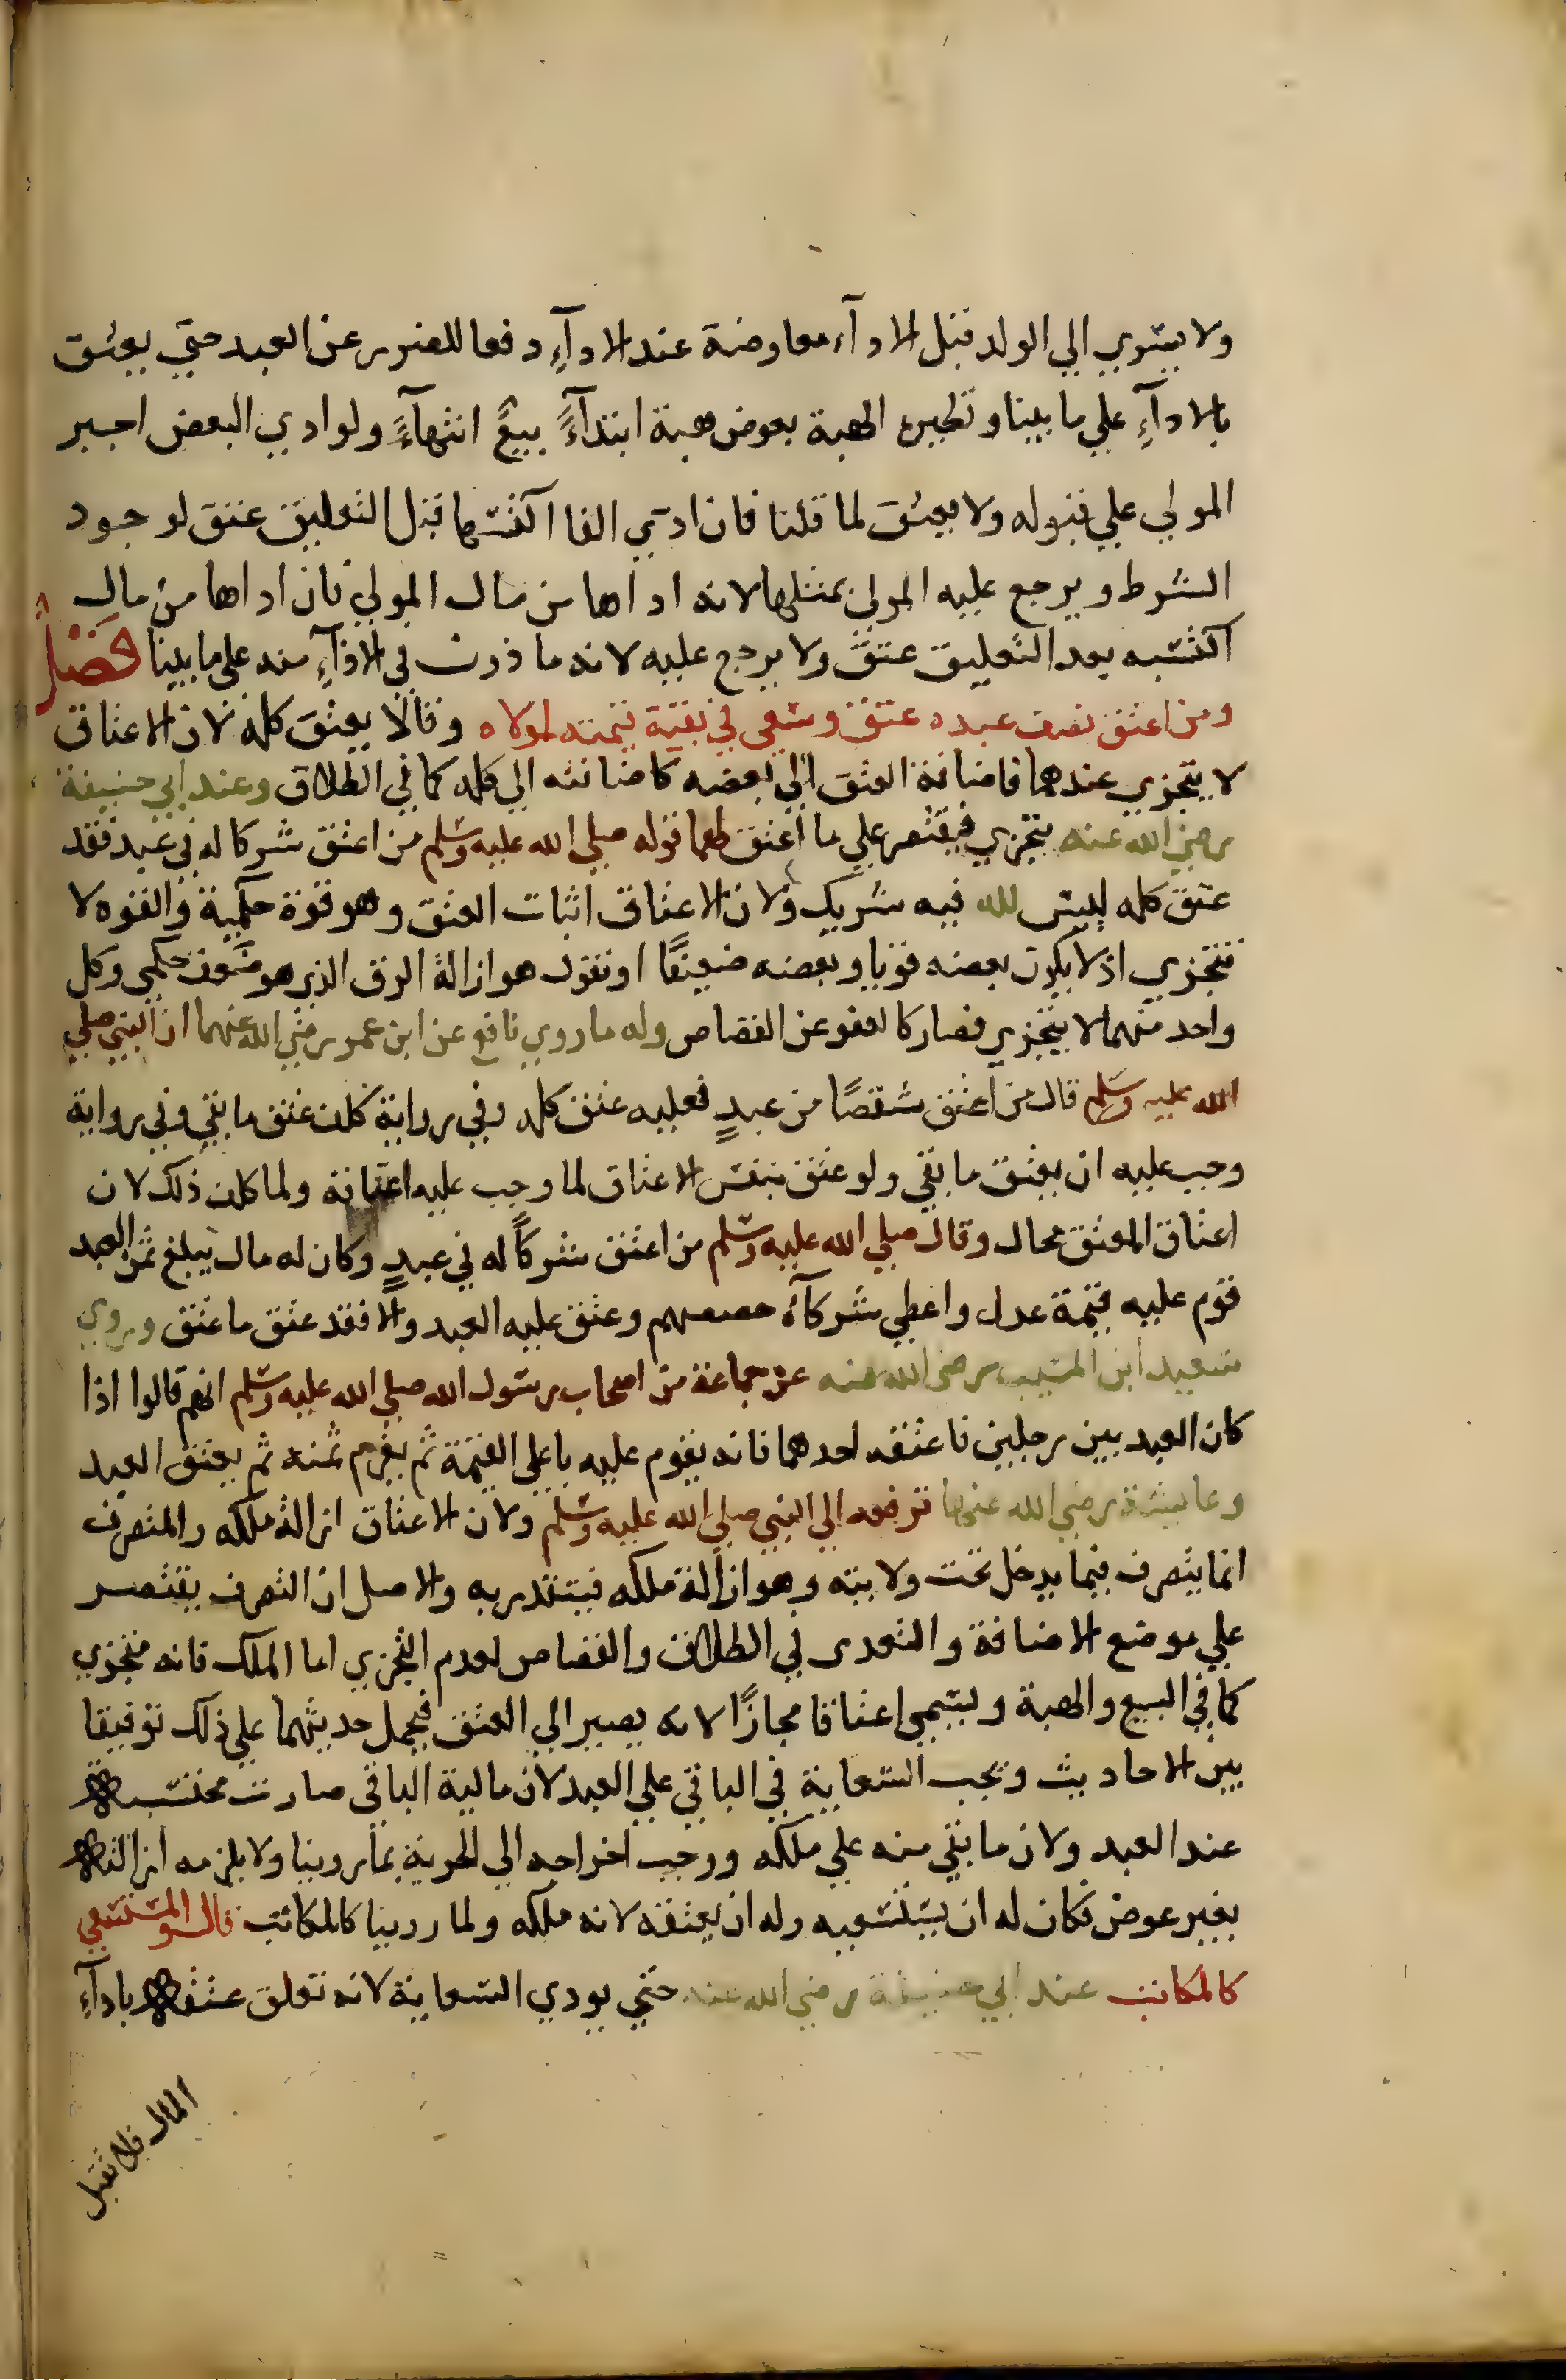 ولا يسري الي الولد قبل الادآء معاوضة عند الادآءِ دفعا للضرر عن العبد حتي يعتق
بالادآءِ علي ما بينا ونظيره الهبة بعوض هبة ابتدآءً بيعً انتهآءً ولو ادي البعض اجبر
المولي علي قبوله ولا يعتق لما قلنا فان ادي الفا اكتسبها قبل التعليق عتق لوجود
الشرط ويرجع عليه المولي بمثلها لانه اداها من مال المولي فان اداها من مال
اكتسبه بعد التعليق عتق ولا يرجع عليه لانه ماذون في الادآءِ منه علي ما بينا فصلٌ
ومن اعتق نصف عبده عتق وسعي في بقية قيمته لمولاه وقالا يعتق كله لان الاعتاق
لا يتجزي عندهما فاضافة العتق الي بعضه كاضافته الي كله كما في الطلاق وعند ابي حنيفة
رضي الله عنه يتجزي فيقتصر علي ما اعتق لهما قوله صلي الله عليه وسلم من اعتق شركا له في عبد فقد
عتق كله ليس لله فيه شريك ولان الاعتاق اثبات العتق وهو قوة حكمية والقوه لا
تتجزي اذ لا يكون بعضه قويا وبعضه ضعيفًا او نقول هو ازالة الرق الذي هو ضعف حكمي وكل
واحد منهما لا يتجزي فصار كالعفو عن القصاص وله ما روي نافع عن ابن عمر رضي الله عنهما ان النبي صلي
الله عليه وسلم قال من اعتق شقصًا من عبدٍ فعليه عتق كله وفي رواية كلف عتق ما بقي وفي رواية
وجب عليه ان يعتق ما بقي ولو عتق بنفس الاعتاق لما وجب عليه اعتاقه ولما كلف ذلك لان
اعتاق المعتق محال وقال صلي الله عليه وسلم من اعتق شركاً له في عبدٍ وكان له مال يبلغ ثمن العبد
قوم عليه قيمة عدل واعطي شركآه حصصهم وعتق عليه العبد والا فقد عتق ما عتق وروي
سعيد ابن المسيب رضي الله عنه عن جماعة من اصحاب رسول الله صلي الله عليه وسلم انهم قالوا اذا
كان العبد بين رجلين فاعتقه احدهما فانه يقوم عليه باعلي القيمة ثم يغرم ثمنه ثم يعتق العبد
وعايشة رضي الله عنها ترفعه الي النبي صلي الله عليه وسلم ولان الاعتاق ازالة ملكه والمتصرف
انما يتصرف فيما يدخل تحت ولايته وهو ازالة ملكه فيتقدر به والاصل ان التصرف يقتصر
علي موضع الاضافة والتعدي في الطلاق والقصاص لعدم التجزي اما الملك فانه متجزي
كما في البيع والهبة ويسمي اعتاقا مجازًا لانه يصير الي العتق فيحمل حديثهما علي ذلك توفيقا
بين الاحاديث وتجب السعاية في الباقي علي العبد لان مالية الباقي صارت محتبسة
عند العبد ولان ما بقي منه علي ملكه ووجب اخراجه الي الحرية بما روينا ولا يلزمه ازالته
بغير عوض فكان له ان يستسعيه وله ان يعتقه لانه ملكه ولما روينا كالمكاتب قال والمستسعي
كالمكاتب عند ابي حنيفة رضي الله عنه حتي يودي السعاية لانه تعلق عتقه بادآءِ
المال فلا تقبل